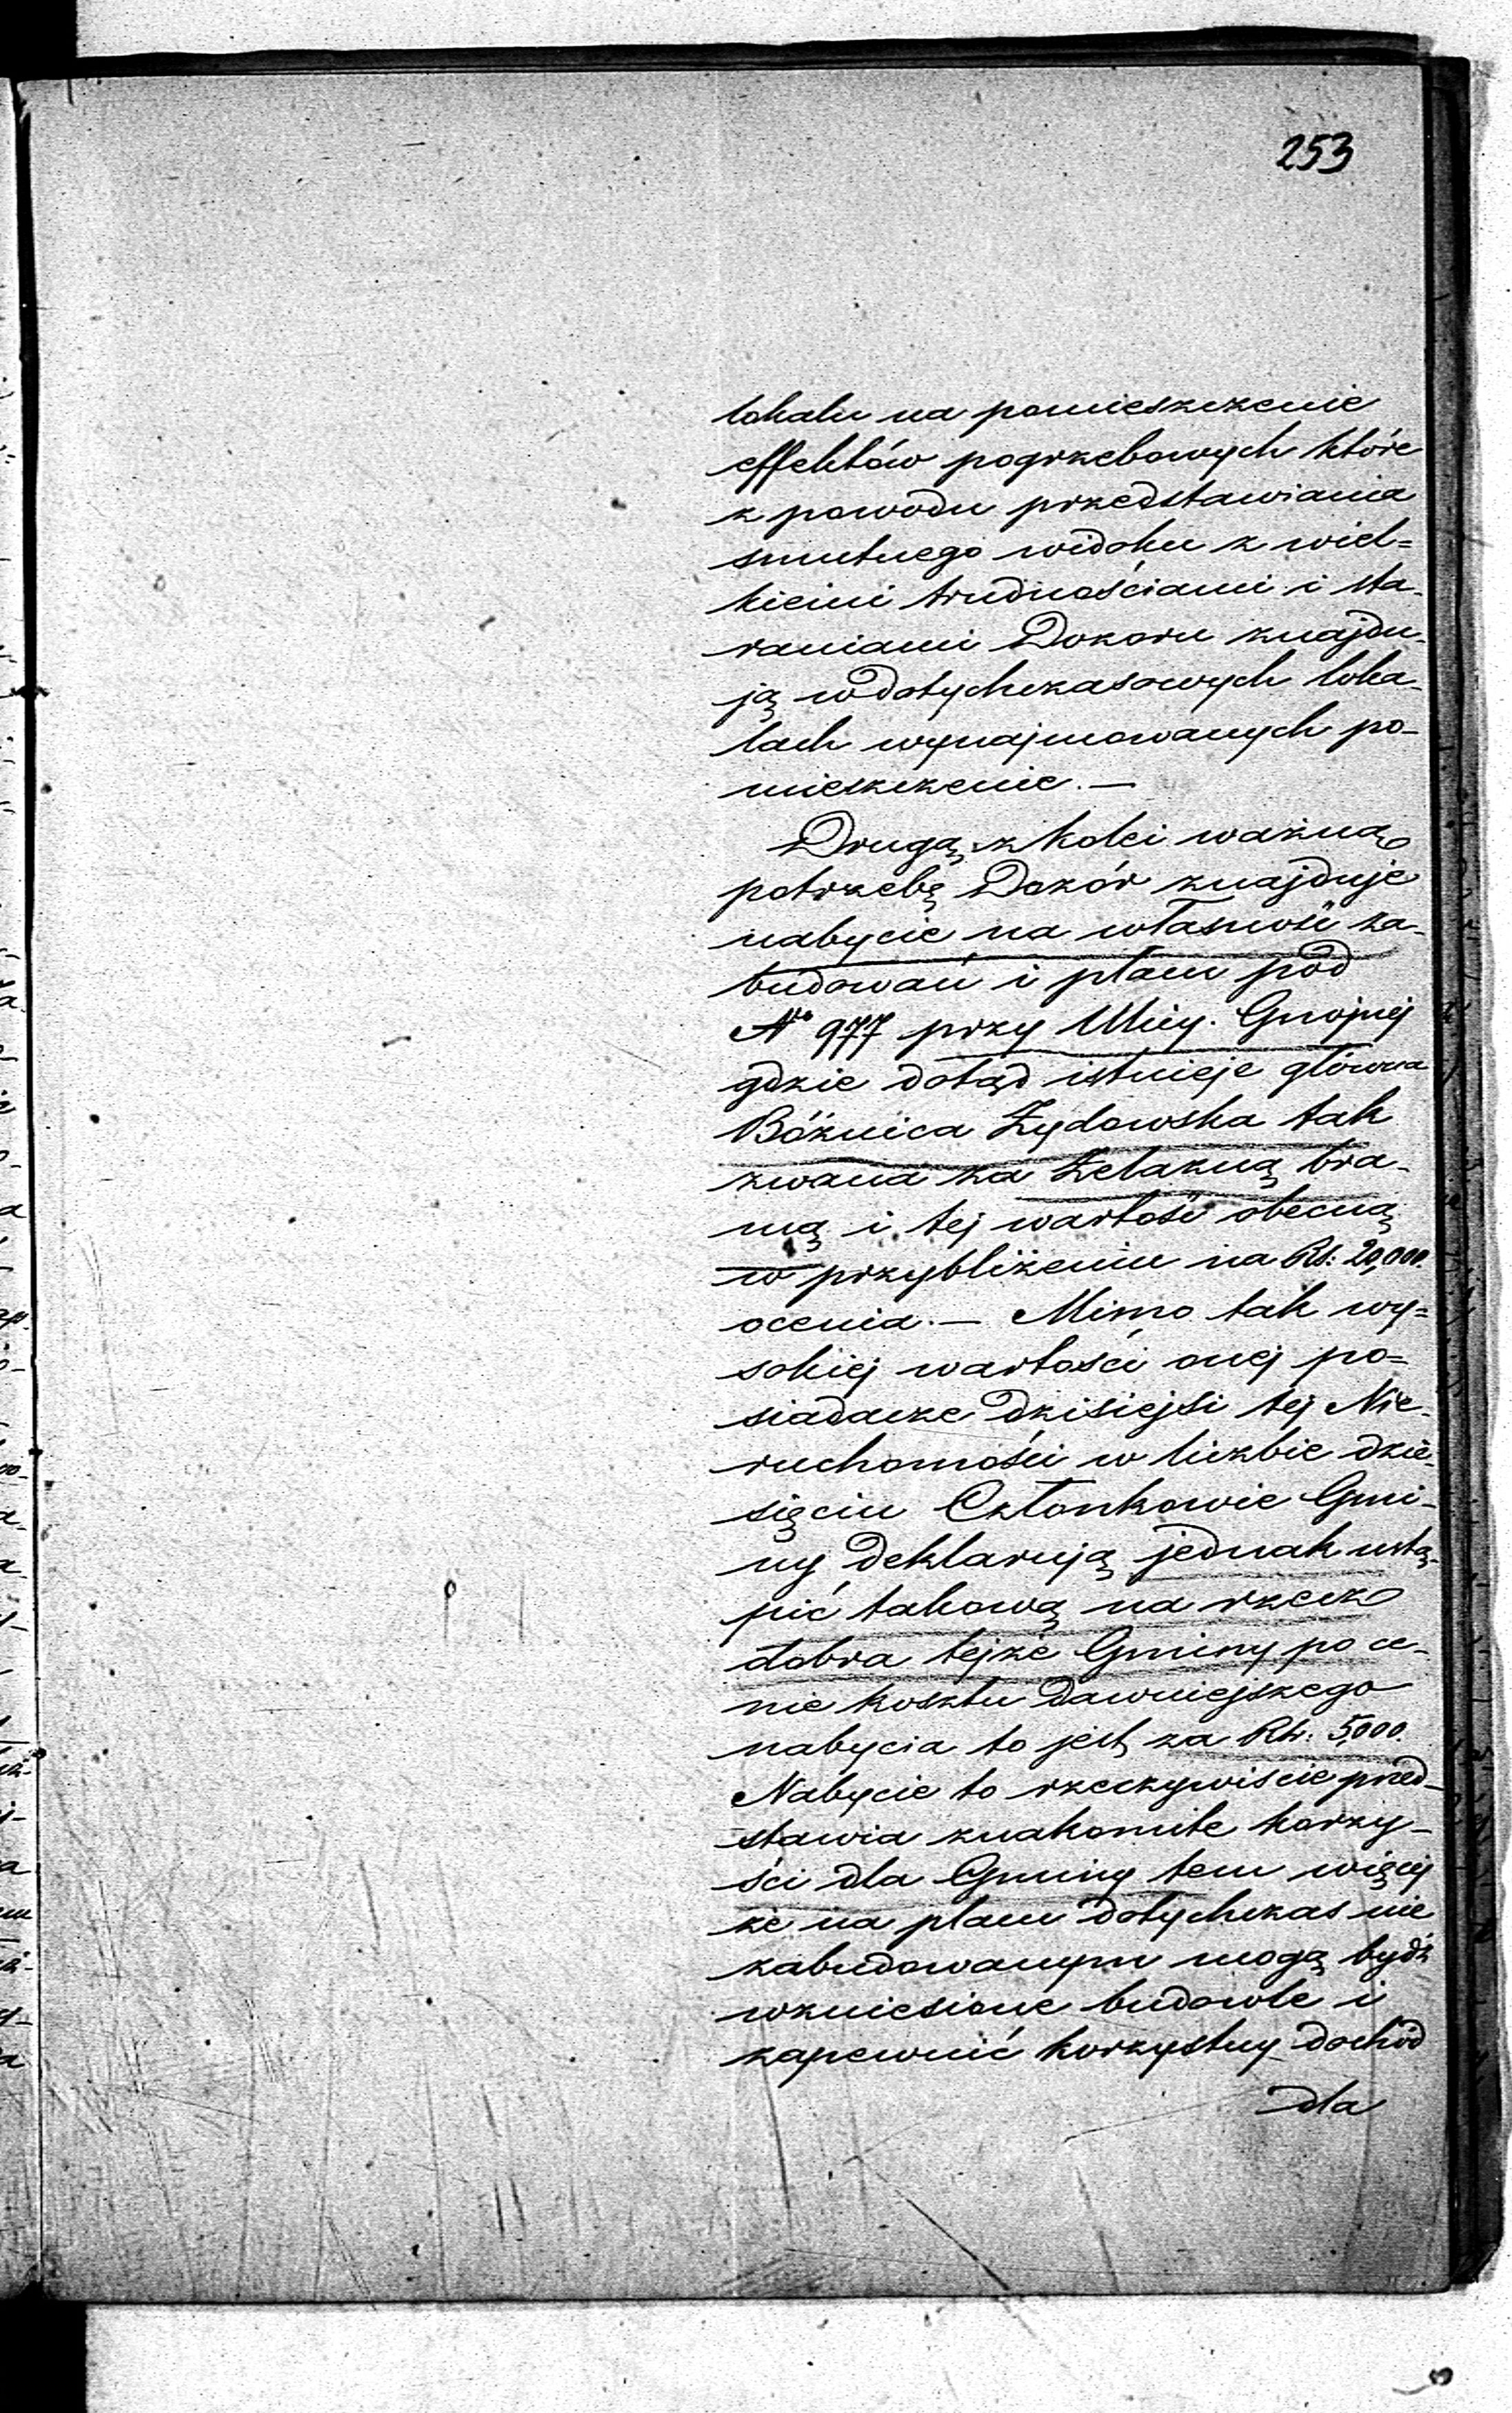 253
lokalu na pomieszczenie
effektów pogrzebowych które
z powodu przedstawiania
smutnego widoku z wiel=
kiemi trudnościami i sta-
raniami Dozoru znajdu-
ją w dotychczasowych loka-
lach wynajmowanych po-
mieszczenie. —
Drugą z kolei ważną
potrzebę Dozór znajduje
nabycie na własność za-
budowań i placu pod
No 977 przy Ulicy Gnojnej
gdzie dotąd istnieje główna
Bóżnica Żydowska tak
zwana za Żelazną bra-
mą i tej wartość obecną
w przybliżeniu na Rs: 20,000.
ocenia. — Mimo tak wy=
sokiej wartości onej po=
siadacze dzisiejsi tej Nie-
ruchomości w liczbie dzie-
sięciu Członkowie Gmi-
ny deklarują jednak ustą-
pić takową na rzecz
dobra tejże Gminy po ce-
nie kosztu dawniejszego
nabycia to jest za Rs: 5,000.
Nabycie to rzeczywiście przed-
stawia znakomite korzy-
ści dla Gminy tem więcej
że na placu dotychczas nie
zabudowanym mogą bydź
wzniesione budowle i
zapewnić korzystny dochód
dla